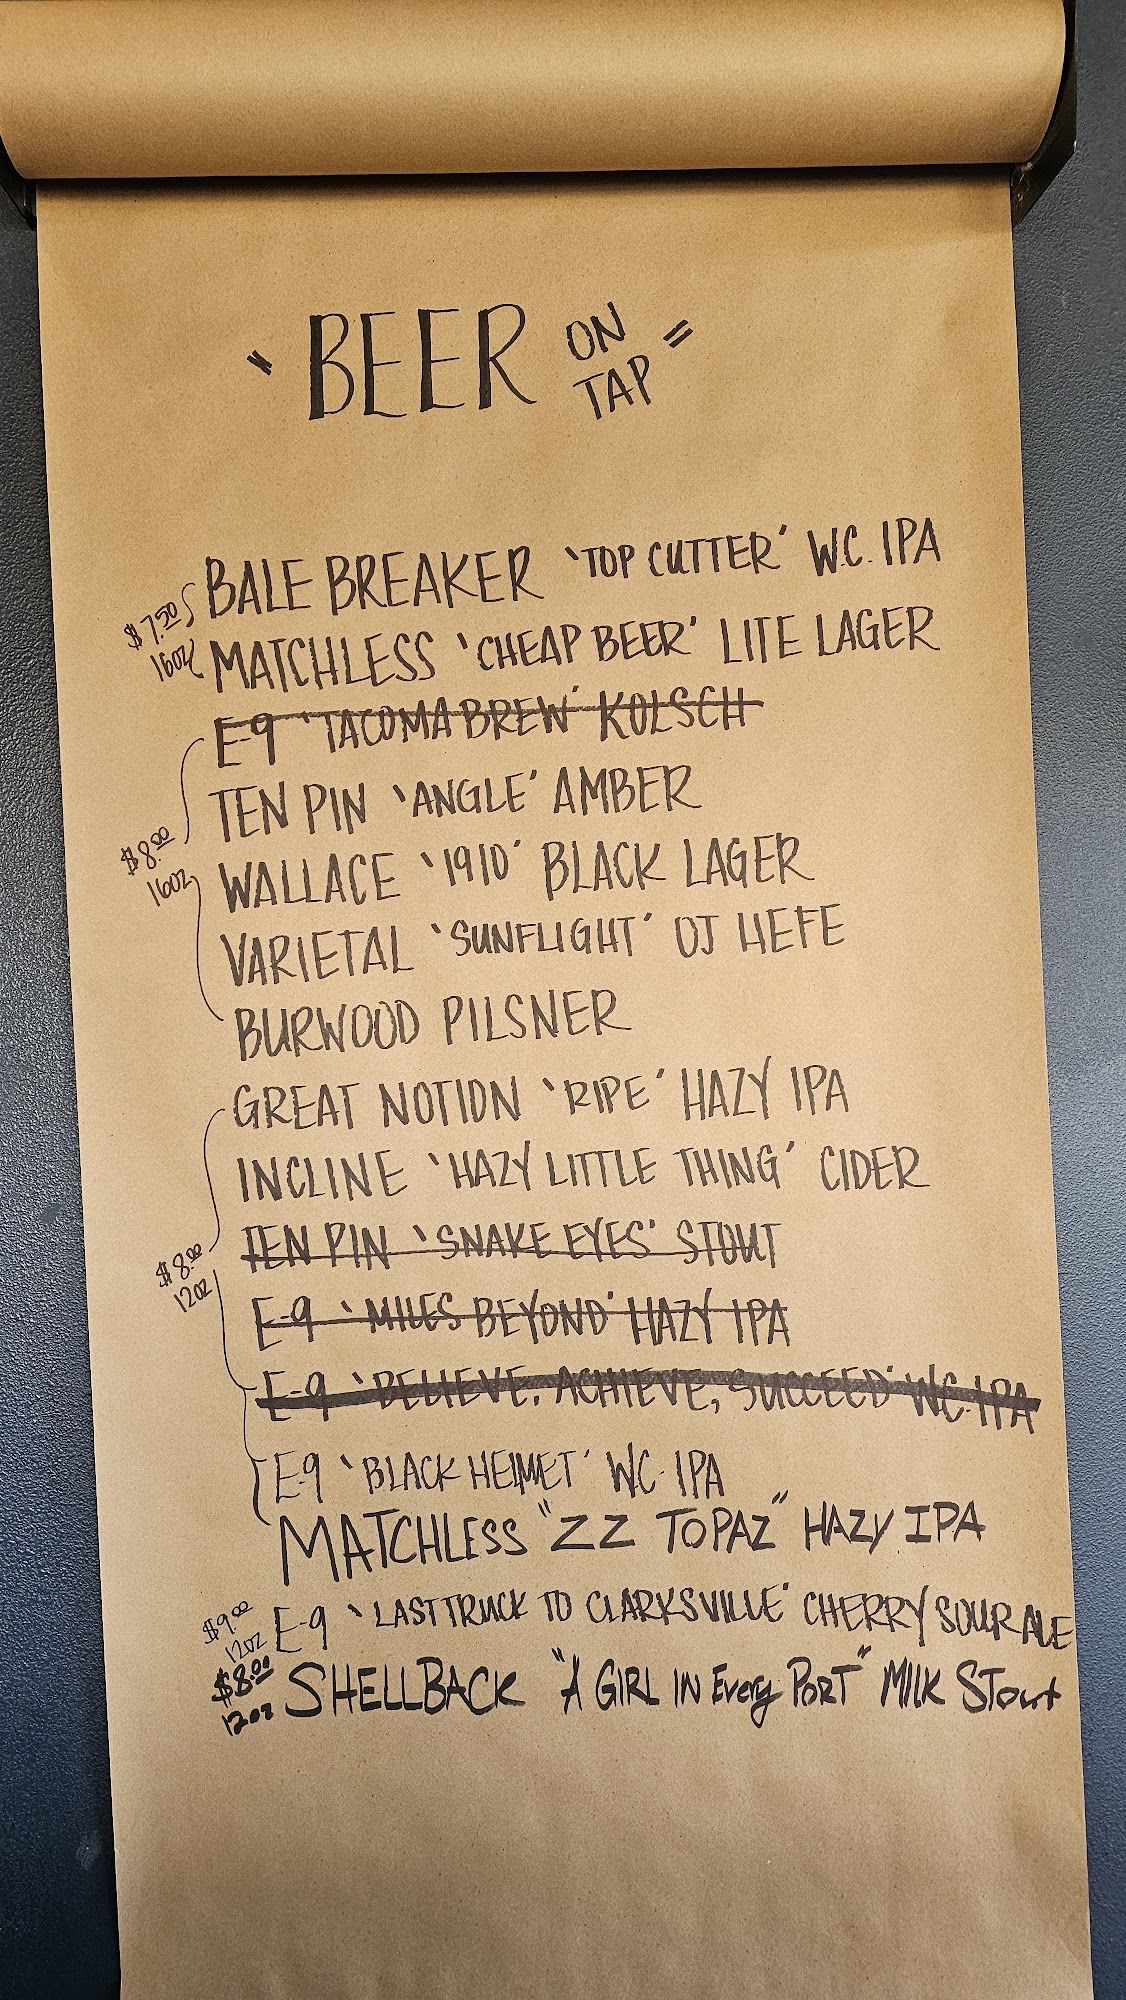 "BEER ON TAP"
$7.50 16oz
BALE BREAKER 'TOP CUTTER' W.C. IPA
MATCHLESS 'CHEAP BEER' LITE LAGER
E-9 'TACOMA BREW' KOLSCH
$8.00 16oz
TEN PIN 'ANGLE' AMBER
WALLACE '1910' BLACK LAGER
VARIETAL 'SUNFLIGHT' OJ HEFE
BURWOOD PILSNER
GREAT NOTION 'RIPE' HAZY IPA
INCLINE 'HAZY LITTLE THING' CIDER
$8.00 12oz
TEN PIN 'SNAKE EYES' STOUT
E-9 'MILES BEYOND' HAZY IPA
E-9 'BELIEVE, ACHIEVE, SUCCEED' W.C. IPA
E-9 'BLACK HELMET' W.C. IPA
MATCHLESS "ZZ TOPAZ" HAZY IPA
$9.00 12oz E-9 'LAST TRUCK TO CLARKSVILLE' CHERRY SOUR ALE
$8.00 12oz SHELLBACK "A GIRL IN Every PORT" MILK STout